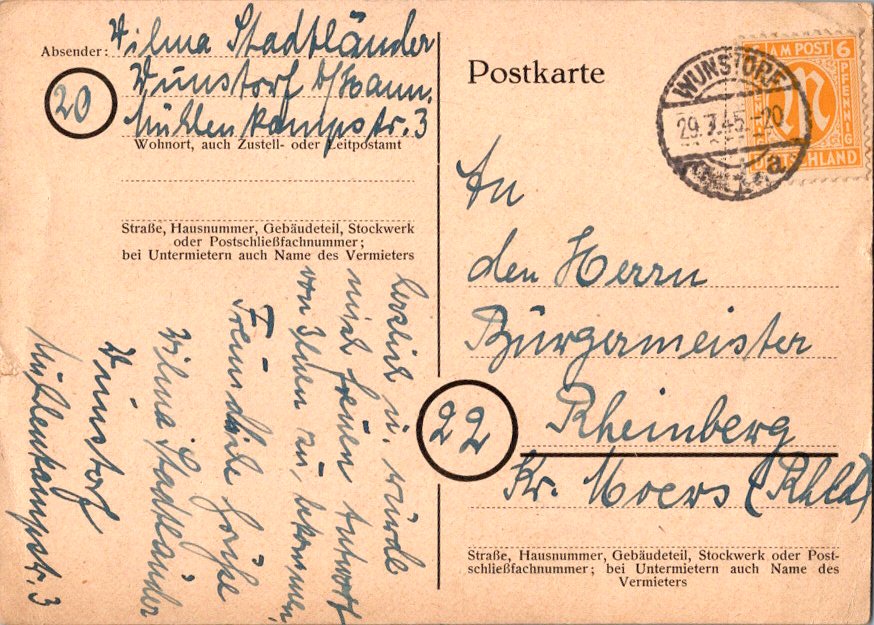 Absender: Wilma Stadtländer
Wunstorf b/Hann.
20
Mühlenkampstr. 3
Wohnort, auch Zustell- oder Leitpostamt
Straße, Hausnummer, Gebäudeteil, Stockwerk
oder Postschließfachnummer;
bei Untermietern auch Name des Vermieters
herzlich u. würde
mich freuen Antwort
von Ihnen zu bekommen
Freundliche Grüße
Wilma Stadtländer
Wunstorf
Mühlenkampstr. 3
Postkarte
WUNSTORF
29.7.45.-20
a
AM POST 6
PFENNIG
M
DEUTSCHLAND
An
den Herrn
Bürgermeister
22
Rheinberg
Kr. Moers (Rhld)
Straße, Hausnummer, Gebäudeteil, Stockwerk oder Post-
schließfachnummer; bei Untermietern auch Name des
Vermieters